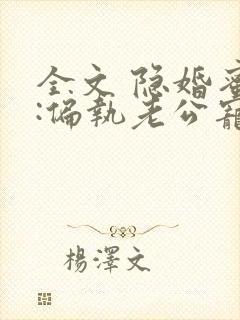 全文 隐婚蜜
:偏執老公寵
楊澤文